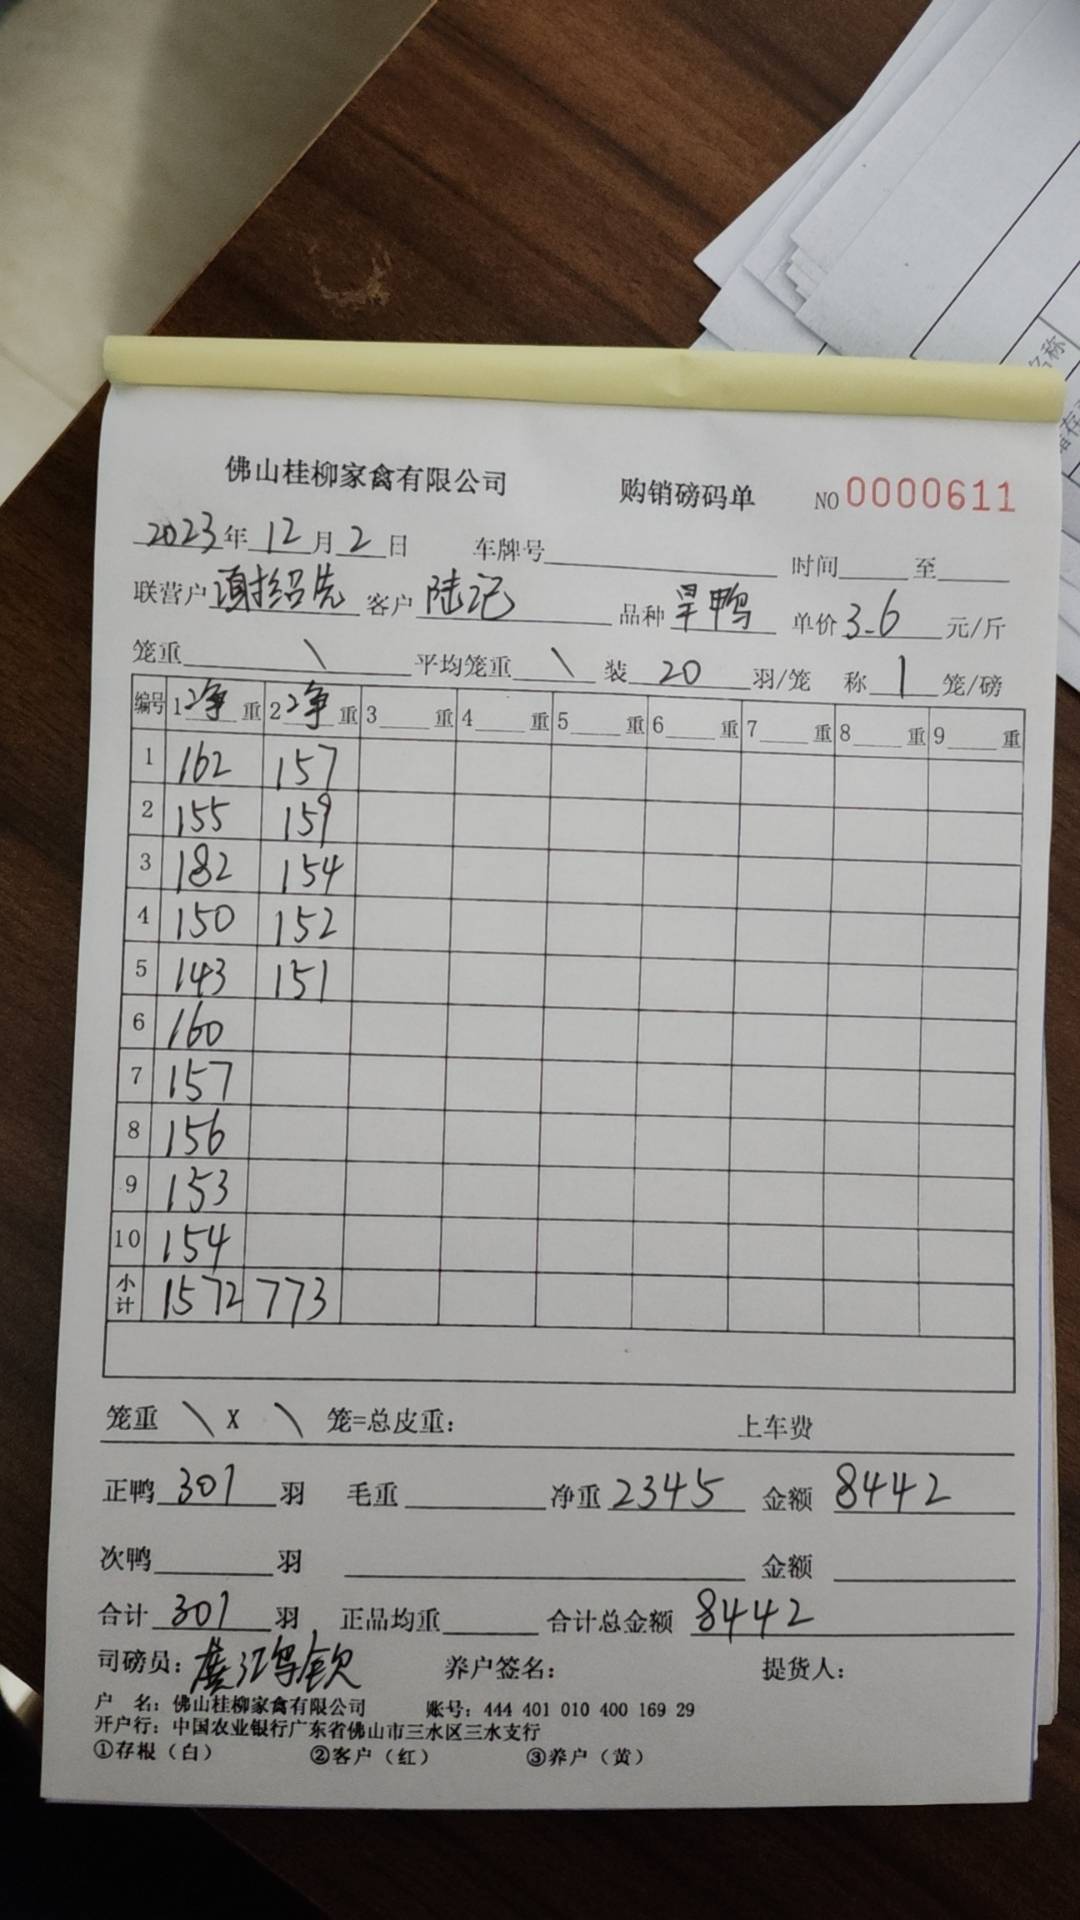 佛山桂柳家禽有限公司 购销磅码单 NO 0000611
2023年12月2日 车牌号 时间 至
联营户 绍先 客户 陆记 品种 旱鸭 单价3.6元/斤
笼重 \ 平均笼重 \ 装 20 羽/笼 称 1 笼/磅
编号 1 净 重 2 净 重 3 重 4 重 5 重 6 重 7 重 8 重 9 重
1 162 157
2 155 159
3 182 154
4 150 152
5 143 151
6 160
7 157
8 156
9 153
10 154
小计 1572 773
笼重 \ X \ 笼=总皮重： 上车费
正鸭 301 羽 毛重 净重 2345 金额 8442
次鸭 羽 金额
合计 301 羽 正品均重 合计总金额 8442
司磅员： 养户签名： 提货人：
户 名：佛山桂柳家禽有限公司 账号：444 401 010 400 169 29
开户行：中国农业银行广东省佛山市三水区三水支行
①存根（白） ②客户（红） ③养户（黄）
名称